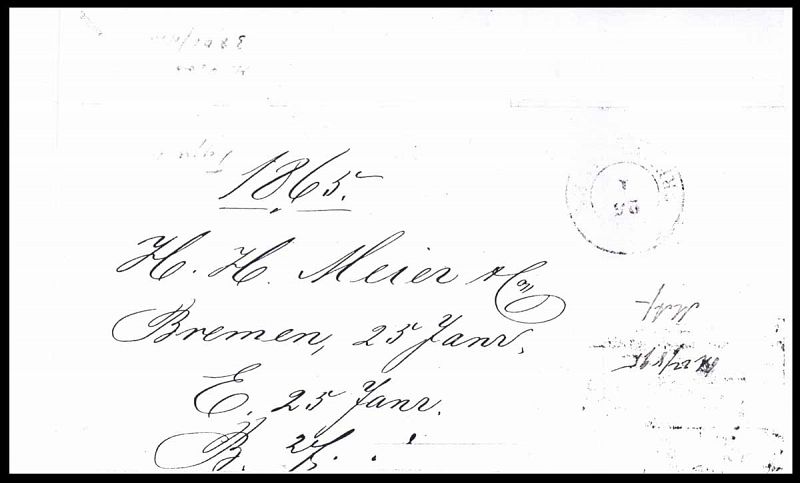 1865.
H. H. Meier & Co
Bremen, 25 Janr.
E. 25 Janr.
B. 27. "